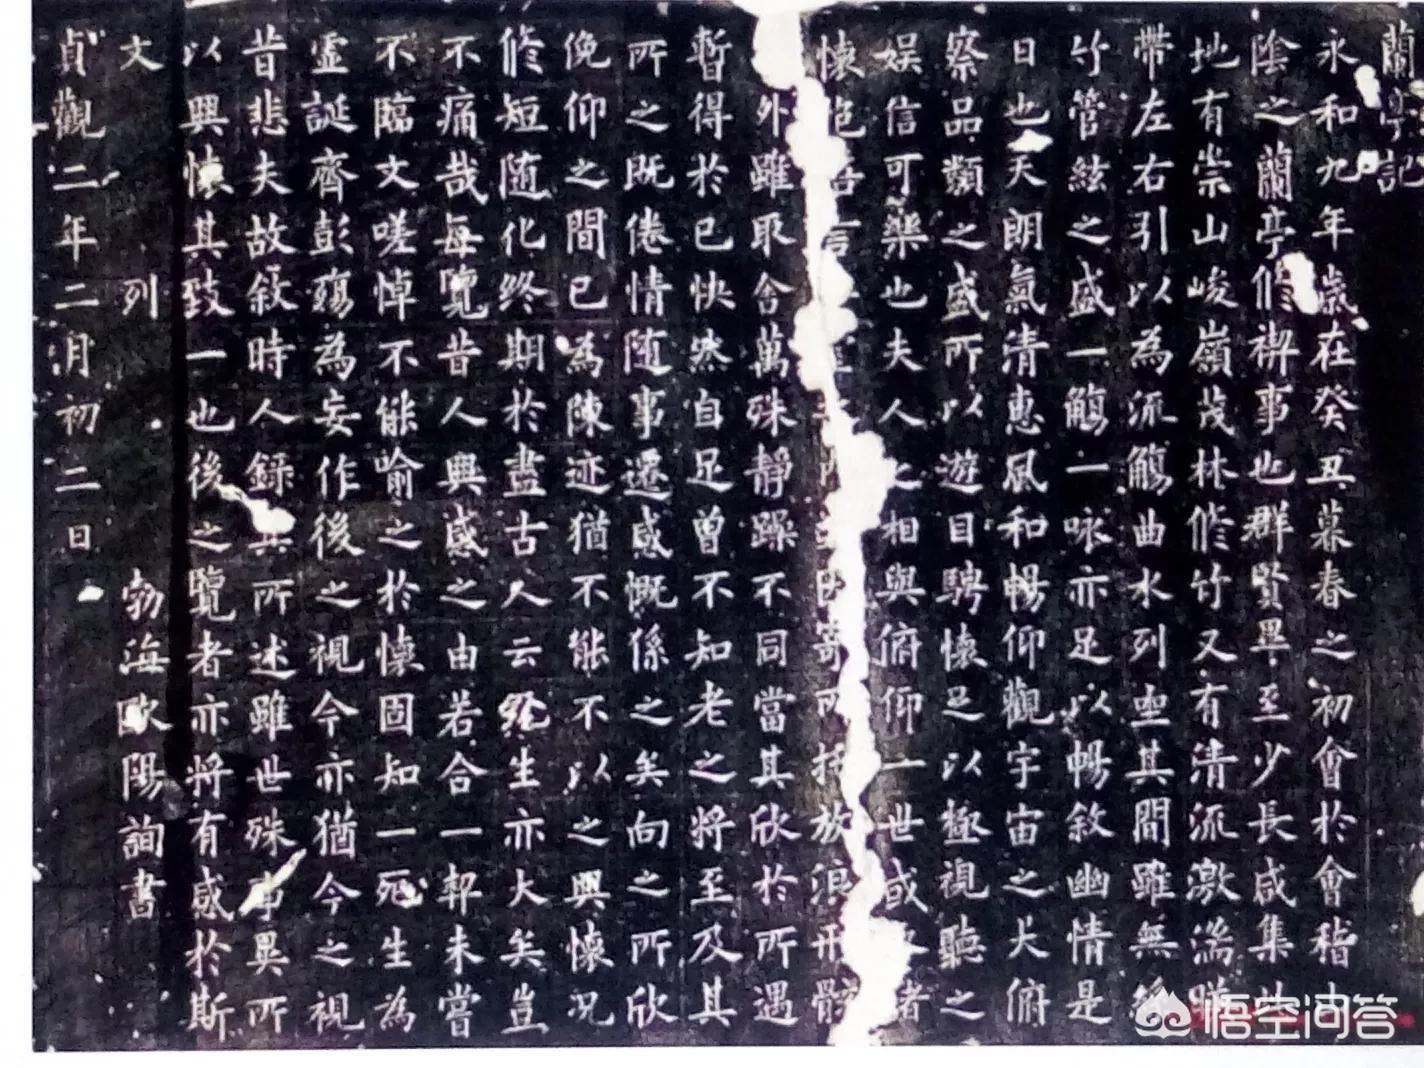 蘭亭記
永和九年歲在癸丑暮春之初會於會稽山
陰之蘭亭修禊事也群賢畢至少長咸集此
地有崇山峻嶺茂林修竹又有清流激湍暎
帶左右引以為流觴曲水列坐其間雖無絲
竹管絃之盛一觴一咏亦足以暢敘幽情是
日也天朗氣清惠風和暢仰觀宇宙之大俯
察品類之盛所以遊目騁懷足以極視聽之
娛信可樂也夫人之相與俯仰一世或諸
懷抱悟言寄所托放浪形骸
外雖取舍萬殊靜躁不同當其欣於所遇
暫得於己快然自足曾不知老之將至及其
所之既倦情隨事遷感慨係之矣向之所欣
俛仰之間已為陳迹猶不能不以之興懷況
修短隨化終期於盡古人云死生亦大矣豈
不痛哉每覽昔人興感之由若合一契未嘗
不臨文嗟悼不能喻之於懷固知一死生為
虛誕齊彭殤為妄作後之視今亦猶今之視
昔悲夫故敘時人錄其所述雖世殊事異所
以興懷其致一也後之覽者亦將有感於斯
文 列 勃海歐陽詢書
貞觀二年二月初二日
悟空问答